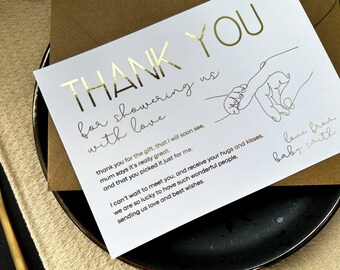 THANK YOU
for showering us
with love
thank you for the gift, that I will soon see,
mum says it's really great,
and that you picked it just for me.
I can't wait to meet you, and receive your hugs and kisses,
we are so lucky to have such wonderful people,
sending us love and best wishes.
love from
baby smith